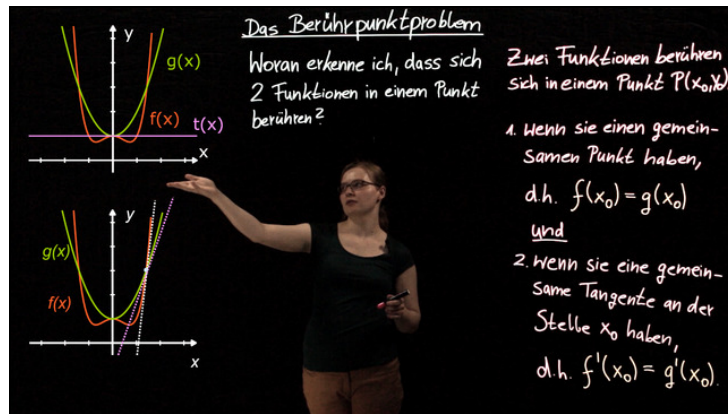 Das Berührpunktproblem
Woran erkenne ich, dass sich
2 Funktionen in einem Punkt
berühren?
y
g(x)
f(x)
t(x)
x
y
g(x)
f(x)
x
Zwei Funktionen berühren
sich in einem Punkt P(x₀,y₀),
1. wenn sie einen gemein-
samen Punkt haben,
d.h. f(x₀) = g(x₀)
und
2. wenn sie eine gemein-
same Tangente an der
Stelle x₀ haben,
d.h. f'(x₀) = g'(x₀).